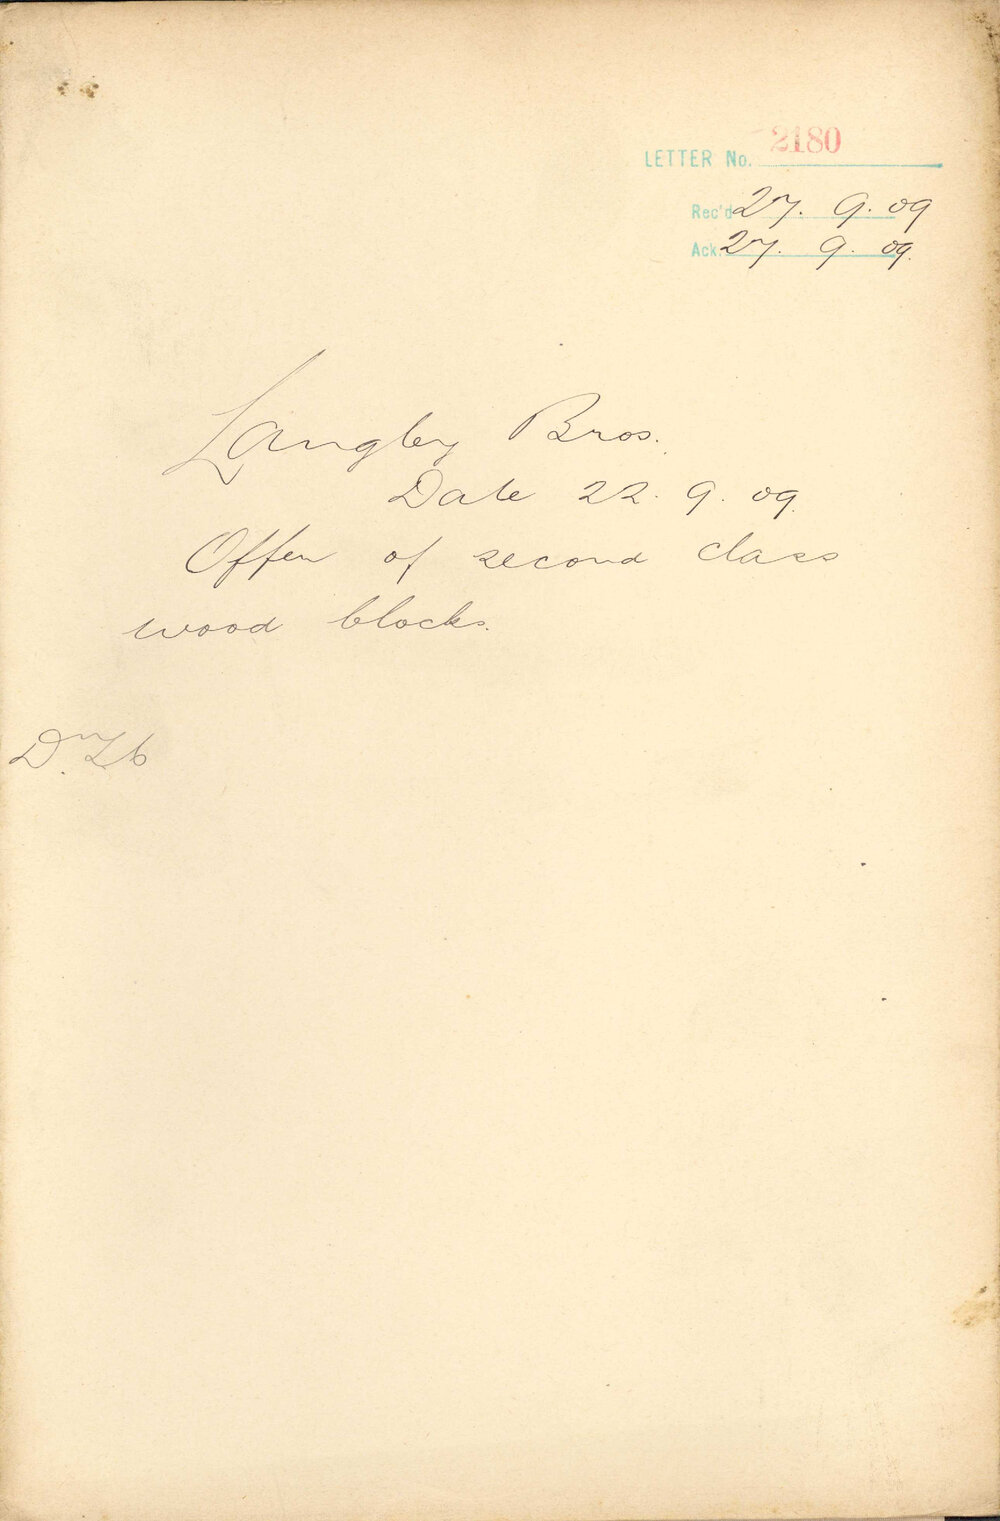 LETTER No. 2180
Rec'd 27. 9. 09
Ack. 27. 9. 09.
Langley Bros.
Date 22. 9. 09.
Offer of second class
wood blocks.